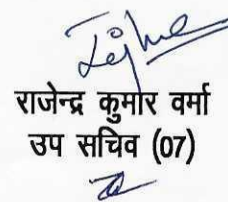 राजेन्द्र कुमार वर्मा
उप सचिव (07)